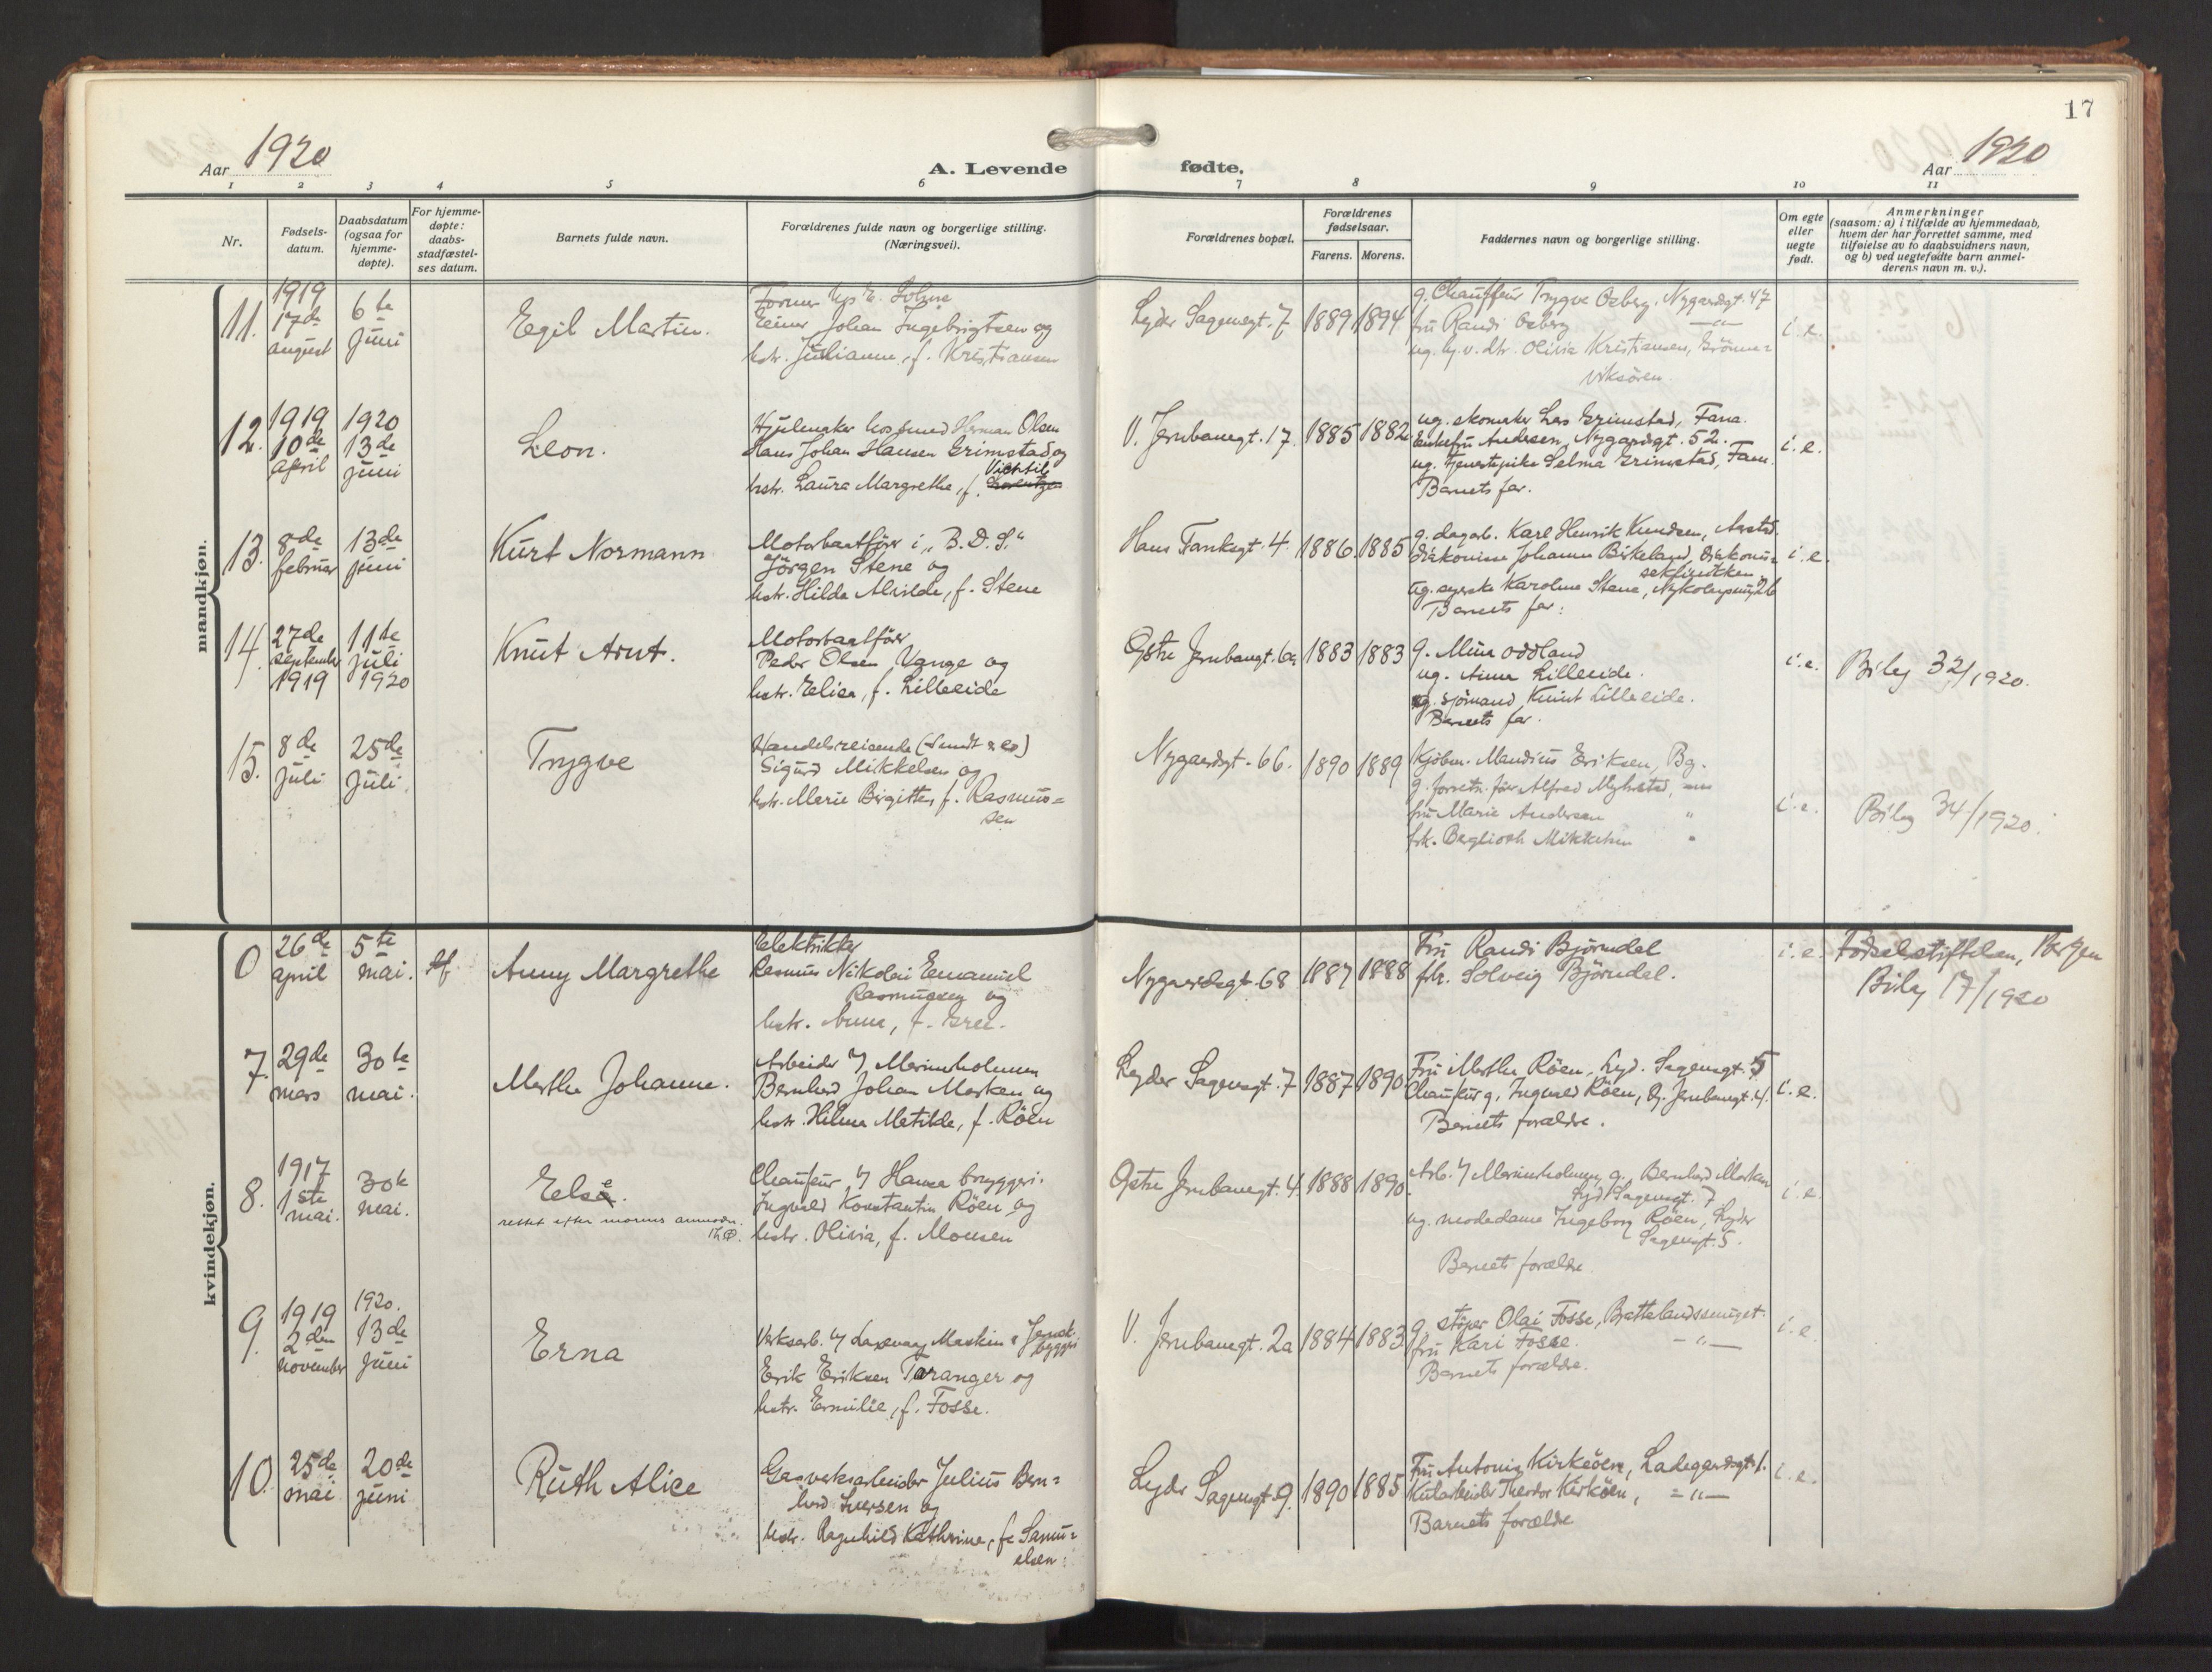 17
Aar 1920
A. Levende fødte.
Aar 1920
1 2 3 4 5 6 7 8 9 10 11
Nr.
Fødsels-
datum.
Daabsdatum
(ogsaa for
hjemme-
døpte).
For hjemme-
døpte:
daabs-
stadfæstel-
ses datum.
Barnets fulde navn.
Forældrenes fulde navn og borgerlige stilling.
(Næringsvei).
Forældrenes bopæl.
Forældrenes
fødselsaar.
Farens. Morens.
Faddernes navn og borgerlige stilling.
Om egte
eller
uegte
født.
Anmerkninger
(saasom: a) i tilfælde av hjemmedaab,
hvem der har forrettet samme, med
tilføielse av to daabsvidners navn,
og b) ved uegtefødte barn anmel-
derens navn m. v.).
mandkjøn.
11.
1919
17de
august
6te
juni
Egil Martin.
Einar Johan Ingebrigtsen og
hstr. Julianne, f. Kristiansen
Lyder Sagensgt. 7
1889 1894
g. Chauffeur Trygve Osberg, Nygaardsgt. 47
fru Randi Osberg — " —
Olivia Kristiansen, Grönne-
viksören.
i. e.
12.
1919
10de
april
1920
13de
juni
Leon.
Hjulmaker hos smed Herman Olsen
Hans Johan Hansen Grimstad og
hstr. Laura Margrethe, f.
V. Jernbanegt. 17.
1885 1882
ug. skomaker Lars Grimstad, Fana.
Enkefru Andersen, Nygaardsgt. 52.
ug. tjenestepike Selma Grimstad, Fana.
Barnets far.
i. e.
13.
8de
februar
13de
juni
Kurt Normann
Motorbaatfører i "B. D. S."
Jörgen Stene og
hstr. Hilda Alvilde, f. Stene
Hans Tanksgt. 4.
1886. 1885
g. dagarb. Karl Henrik Knudsen, Aarstad.
diakonisse Johanna Birkeland,
ug. syerske Karoline Stene,
Barnets far.
i. e.
14.
27de
september
1919
11te
juli
1920
Knut Arnt.
Motorbaatfører
Peder Olsen Vange og
hstr. Elisa, f. Lilleeide
Østre Jernbanegt. 6a
1883 1883
g. Mina Oddland
ug. Anna Lilleeide.
ug. sjömand Knut Lilleeide.
Barnets far.
i. e.
Bilag 32/1920.
15.
8de
juli
25de
juli
Trygve
Handelsreisende (Sundt & co)
Sigurd Mikkelsen og
hstr. Marie Birgitte, f. Rasmus=
sen
Nygaardsgt. 66.
1890 1889
Kjöbm. Mandius Eriksen, Bg.
g. forretn. før Alfred Myhrstad,
fru Marie Andersen "
frk. Bergliot Mikkelsen "
i. e.
Bilag 34/1920.
kvindekjøn.
26de
april
5te
mai.
Anny Margrethe
Elektriker
Rasmus Nikolai Emanuel
Rasmussen og
hstr. Anna, f.
Nygaardsgt. 68
1887 1888
Fru Randi Björndal
frk. Solveig Björndal.
i. e.
Fødselsstiftelsen, Bergen
Bilag 17/1920
7.
29de
mars
30te
mai.
Martha Johanne.
Arbeider v/ Marineholmen
Bernhard Johan Marken og
hstr. Hilma Matilde, f. Röen
Lyder Sagensgt. 7
1887 1890
Fru Martha Röen, Lyd. Sagensgt. 5
Chauffør g. Ingvald Röen, Ø. Jernbanegt. 4.
Barnets forældre.
i. e.
8.
1917
1ste
mai.
30te
mai.
Else.
rettet efter morens anmodn.
Chauffeur v/ Hansa bryggeri.
Ingvald Konstantin Röen og
hstr. Olivia, f. Monsen
Østre Jernbanegt. 4.
1888 1890
Arb. v/ Marineholmen g. Bernhard Marken
Lyd. Sagensgt. 7
ug. modedame Ingeborg Röen, Lyder
Sagensgt. 5.
Barnets forældre
i. e.
9.
1919
2den
november
1920.
13de
juni
Erna
Verksarb. v/ Laxevaag Maskin &
Erik Eriksen Taranger og
hstr. Emilie, f. Fosse.
V. Jernbanegt. 2a
1884 1883
g. støper Olai Fosse, Brattelandssmuget.
fru Kari Fosse. — " —
Barnets forældre.
i. e.
10.
25de
mai
20de
juni
Ruth Alice
Gasverksarbeider Julius Bern=
hard Iversen og
hstr. Ragnhild Kathrine, f. Samu=
elsen.
Lyder Sagensgt. 9.
1890 1885
Fru Antonie Kirkøen, Ladegaardsgt. 1.
Kularbeider Theodor Kirkøen, = " —
Barnets forældre
i. e.